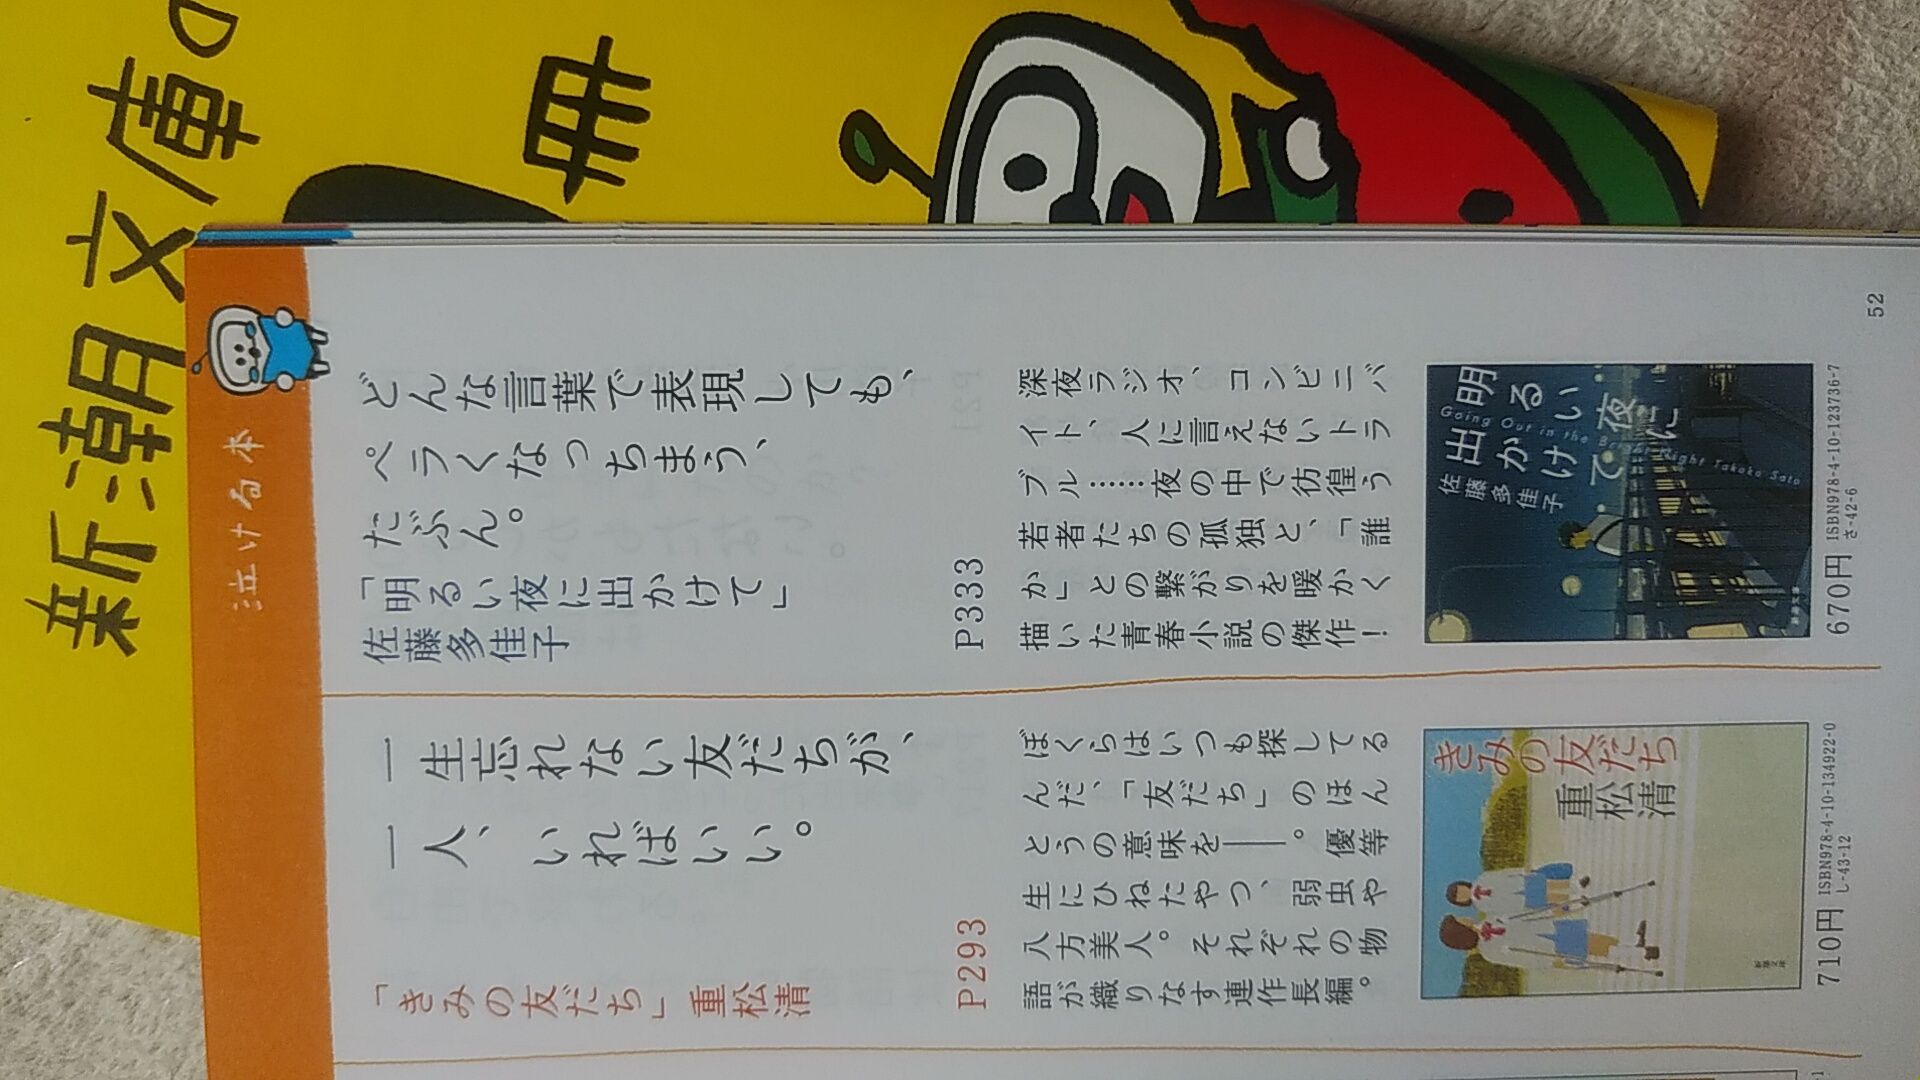 新潮文庫の
冊
泣ける本
どんな言葉で表現しても、
ペラくなっちまう、
たぶん。
「明るい夜に出かけて」
佐藤多佳子
P333
深夜ラジオ、コンビニバ
イト、人に言えないトラ
ブル……夜の中で彷徨う
若者たちの孤独と、「誰
か」との繋がりを暖かく
描いた青春小説の傑作!
明るい夜に
出かけて
Going Out in the Bright Night Takako Sato
佐藤多佳子
新潮文庫
670円
ISBN978-4-10-123736-7
さ-42-6
一生忘れない友だちが、
一人、いればいい。
「きみの友だち」重松清
P293
ぼくらはいつも探してる
んだ、「友だち」のほん
とうの意味を――。優等
生にひねたやつ、弱虫や
八方美人。それぞれの物
語が織りなす連作長編。
きみの友だち
重松清
新潮文庫
710円
ISBN978-4-10-134922-0
し-43-12
52